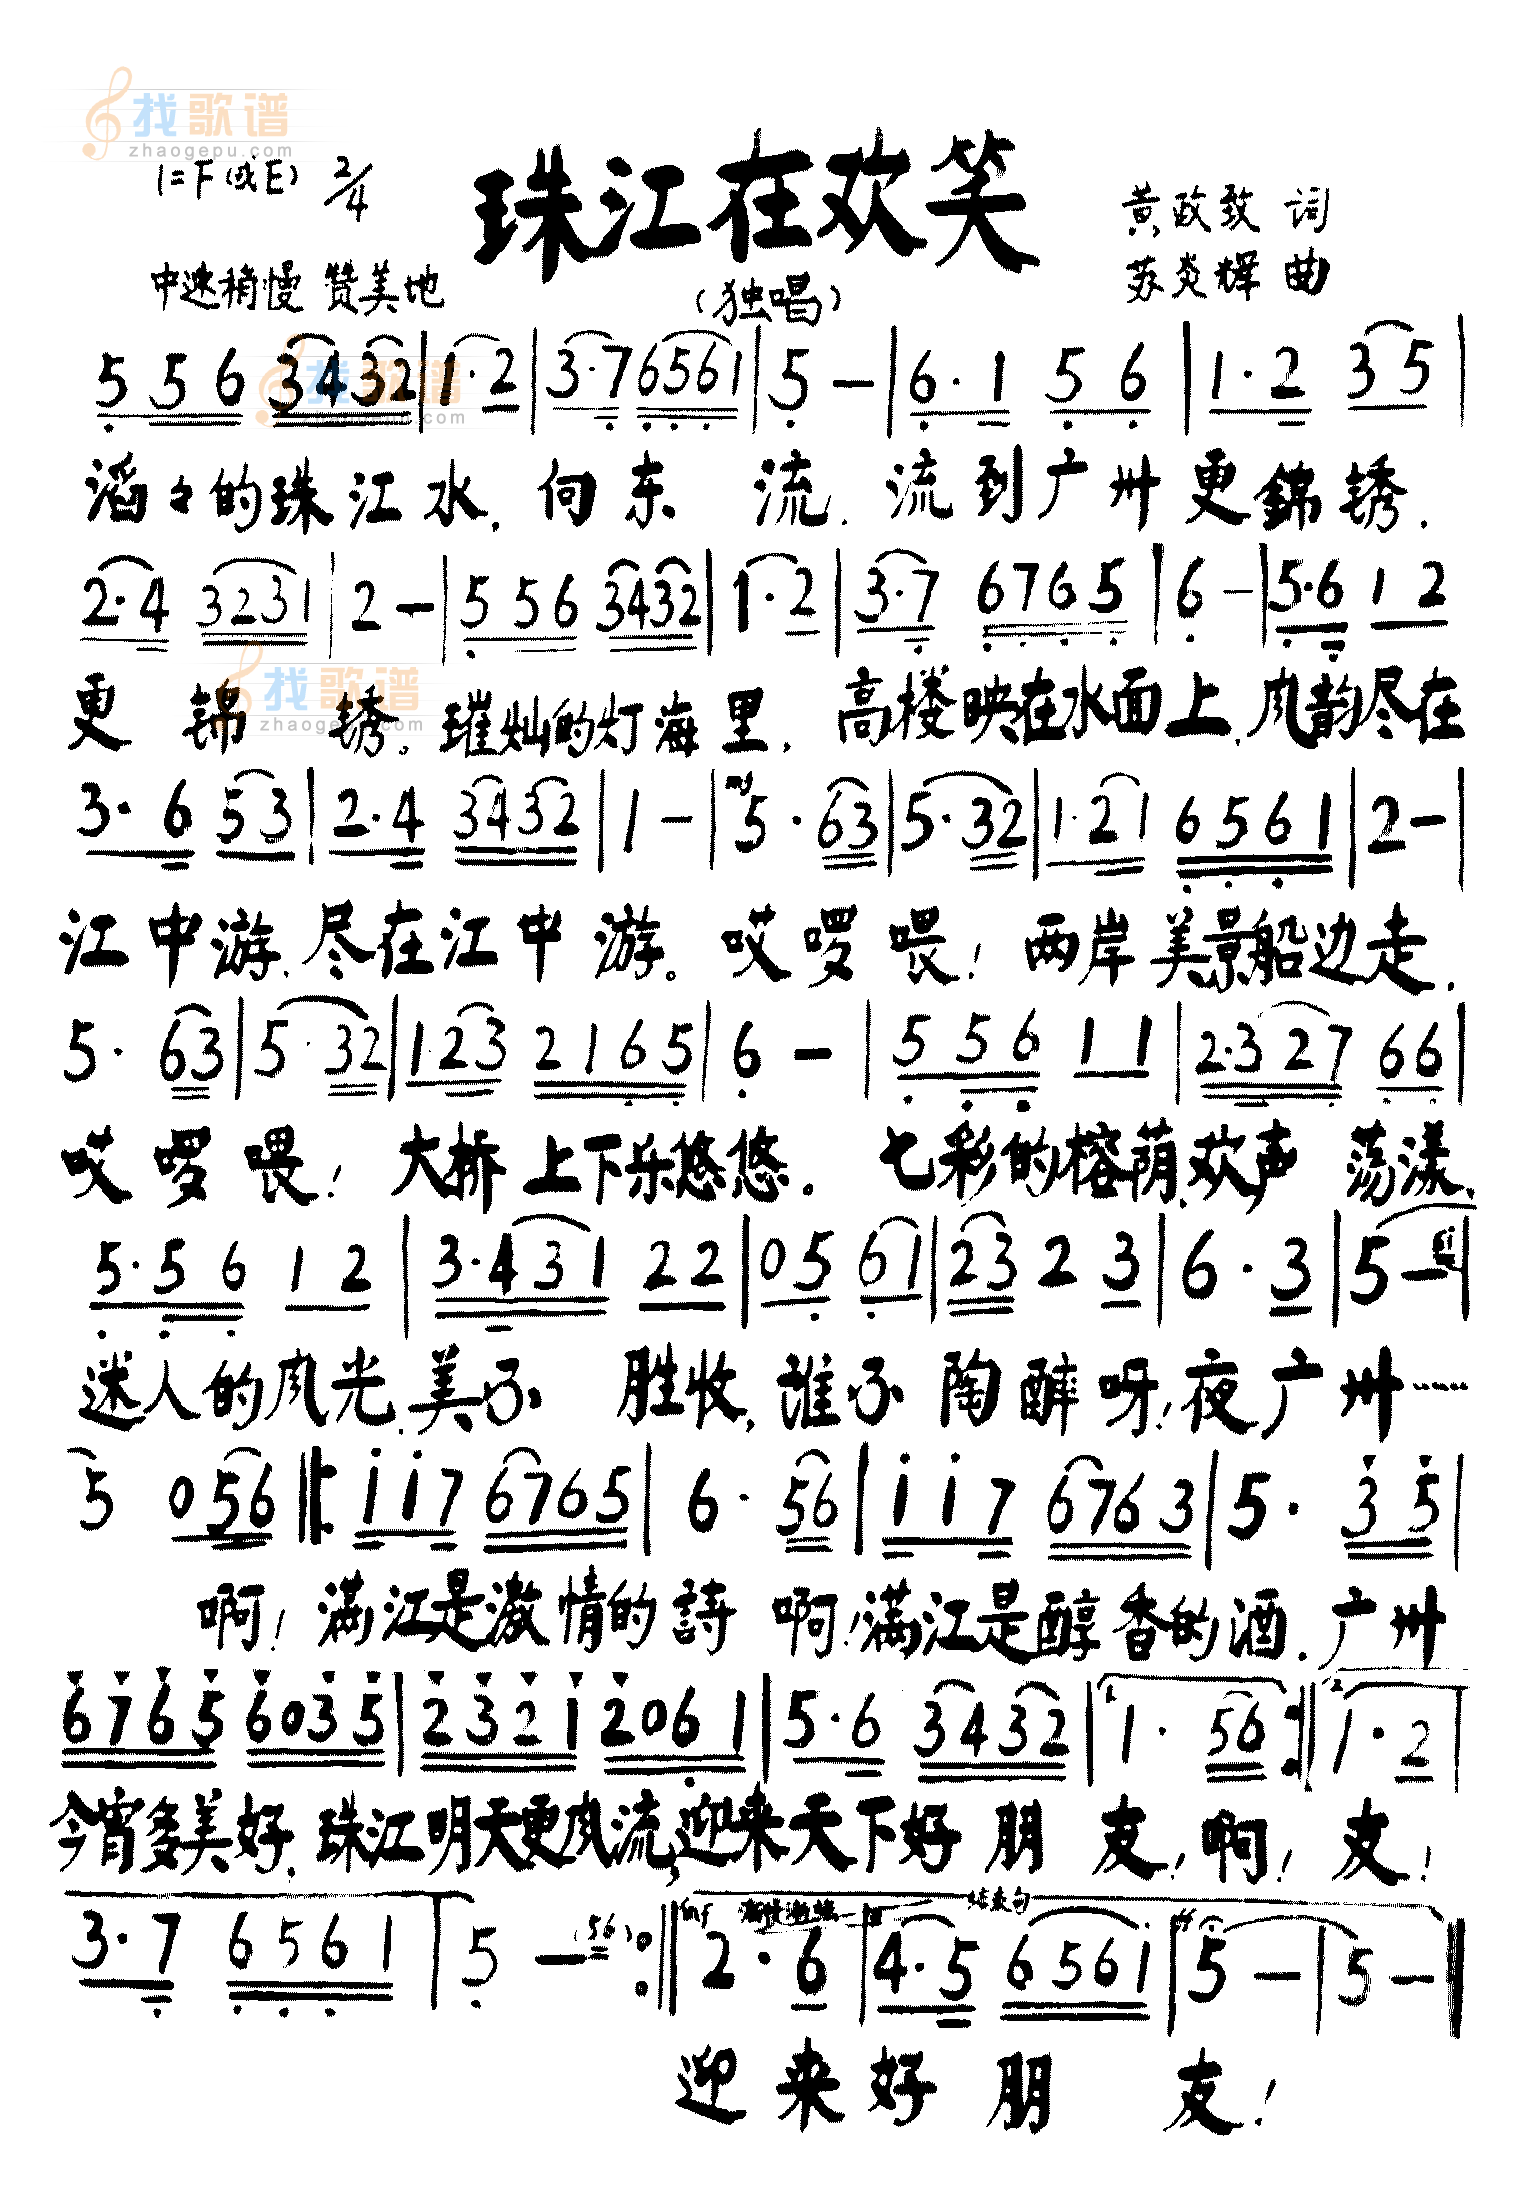 找歌谱
zhaogepu.com
1=F(或E) 2/4
珠江在欢笑
黄政致 词
中速稍慢 赞美地
(独唱)
苏炎辉 曲
5 5 6 3432 | 1·2 | 3·7 6561 | 5 — | 6·1 5 6 | 1·2 3 5 |
滔々的珠江水,向东 流,流到广州更錦锈.
2·4 3231 | 2 — | 5 5 6 3432 | 1·2 | 3·7 6765 | 6 — | 5·6 1 2
找歌谱
zhaogepu.com
更 锦 锈。璀灿的灯海里,高楼映在水面上,风韵尽在
3·6 53 | 2·4 3432 | 1 — | mf 5·63 | 5·32 | 1·21 6561 | 2 — |
江中游、尽在江中游。哎啰喂!两岸美景船边走.
5·63 | 5·32 | 1·23 2165 | 6 — | 5 5 6 1 1 | 2·327 66 |
哎啰喂!大桥上下乐悠悠.七彩的榕荫,欢声 荡漾、
5·5 6 1 2 | 3·431 22 | 05 61 | 23 2 3 | 6·3 | 5 —
迷人的风光,美不 胜收,谁不陶醉呀!夜广州……
5 056 ‖: 1 1 7 6765 | 6·56 | 1 1 7 6763 | 5·35 |
啊!满江是激情的詩 啊!满江是醇香的酒.广州
6765 6035 | 2321 2061 | 5·6 3432 | 1. 1·56 :‖ 2. 1·2 |
今宵多美好、珠江明天更风流,迎来天下好 朋 友!啊!友!
3·7 6561 | 5 — (56) :‖ mf 渐慢渐强 结束句 2·6 | 4·5 6561 | ff 5 — | 5 — ‖
迎来好朋 友!